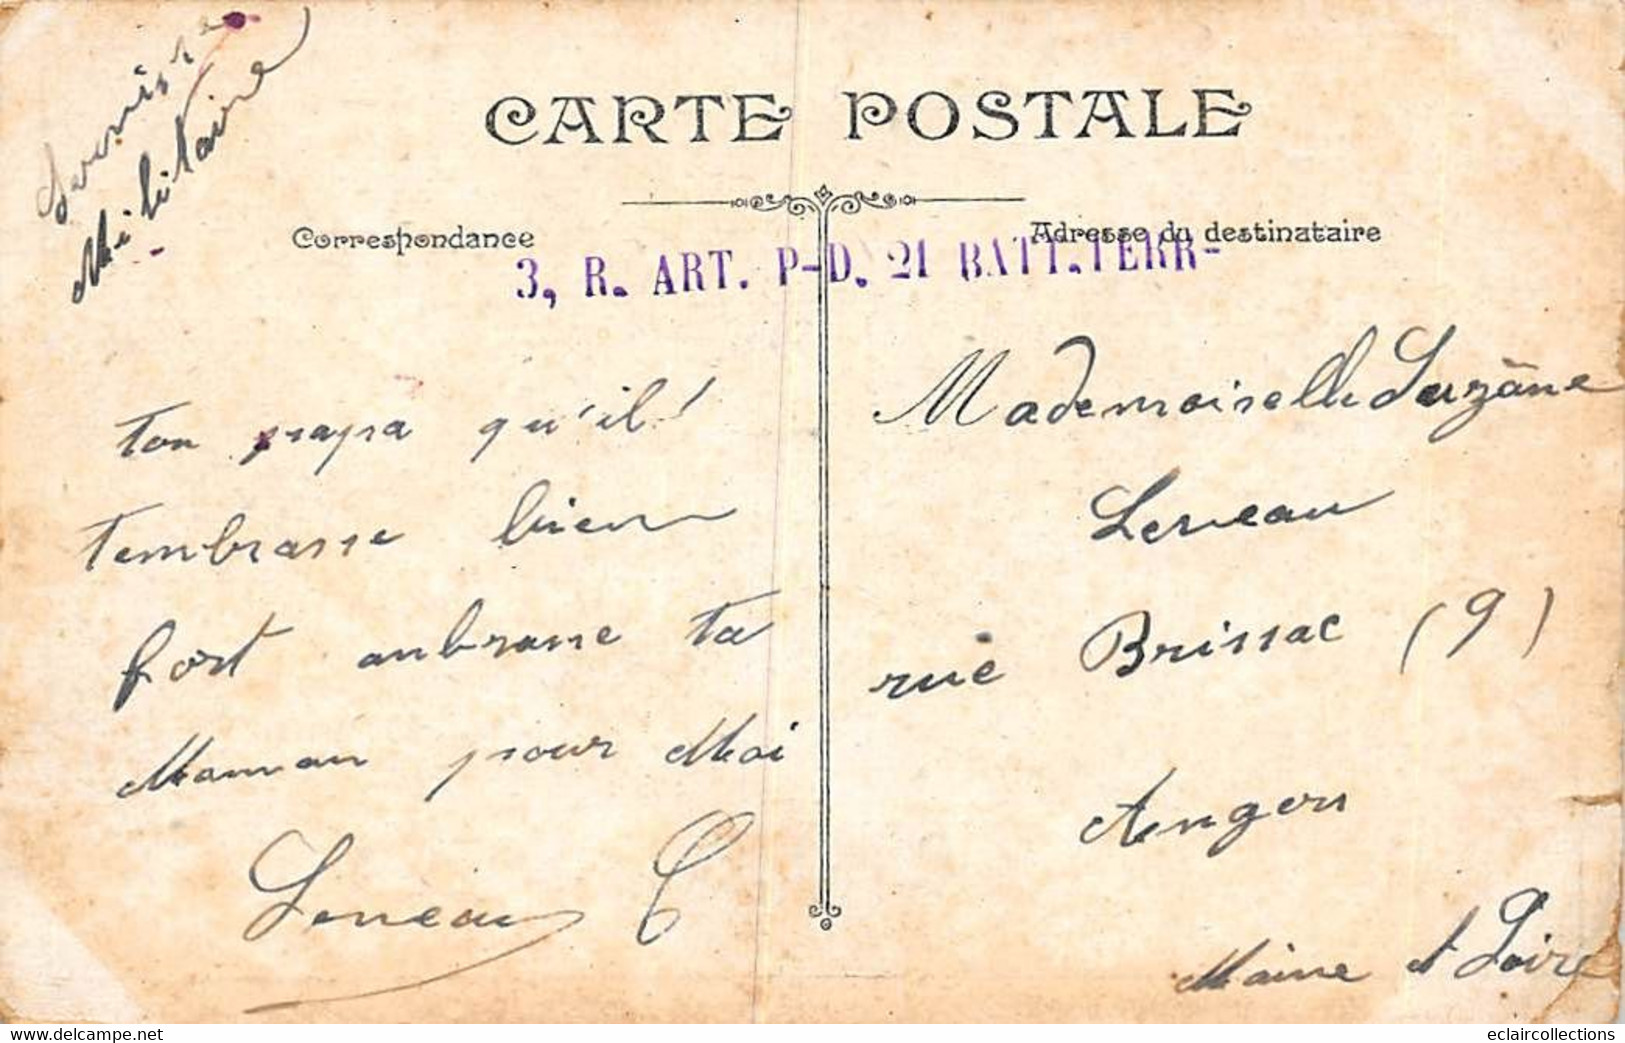 Service
Militaire
CARTE POSTALE
Correspondance
Adresse du destinataire
3, R. ART. P-D. 21 BATT. TERR-
ton papa qu'il
tembrasse bien
fort anbrasse ta
Maman pour Moi
Leneau C
Mademoiselle Suzane
Leneau
rue Brissac (9)
Angers
Maine et Loire
delcampe.net
eclaircollections